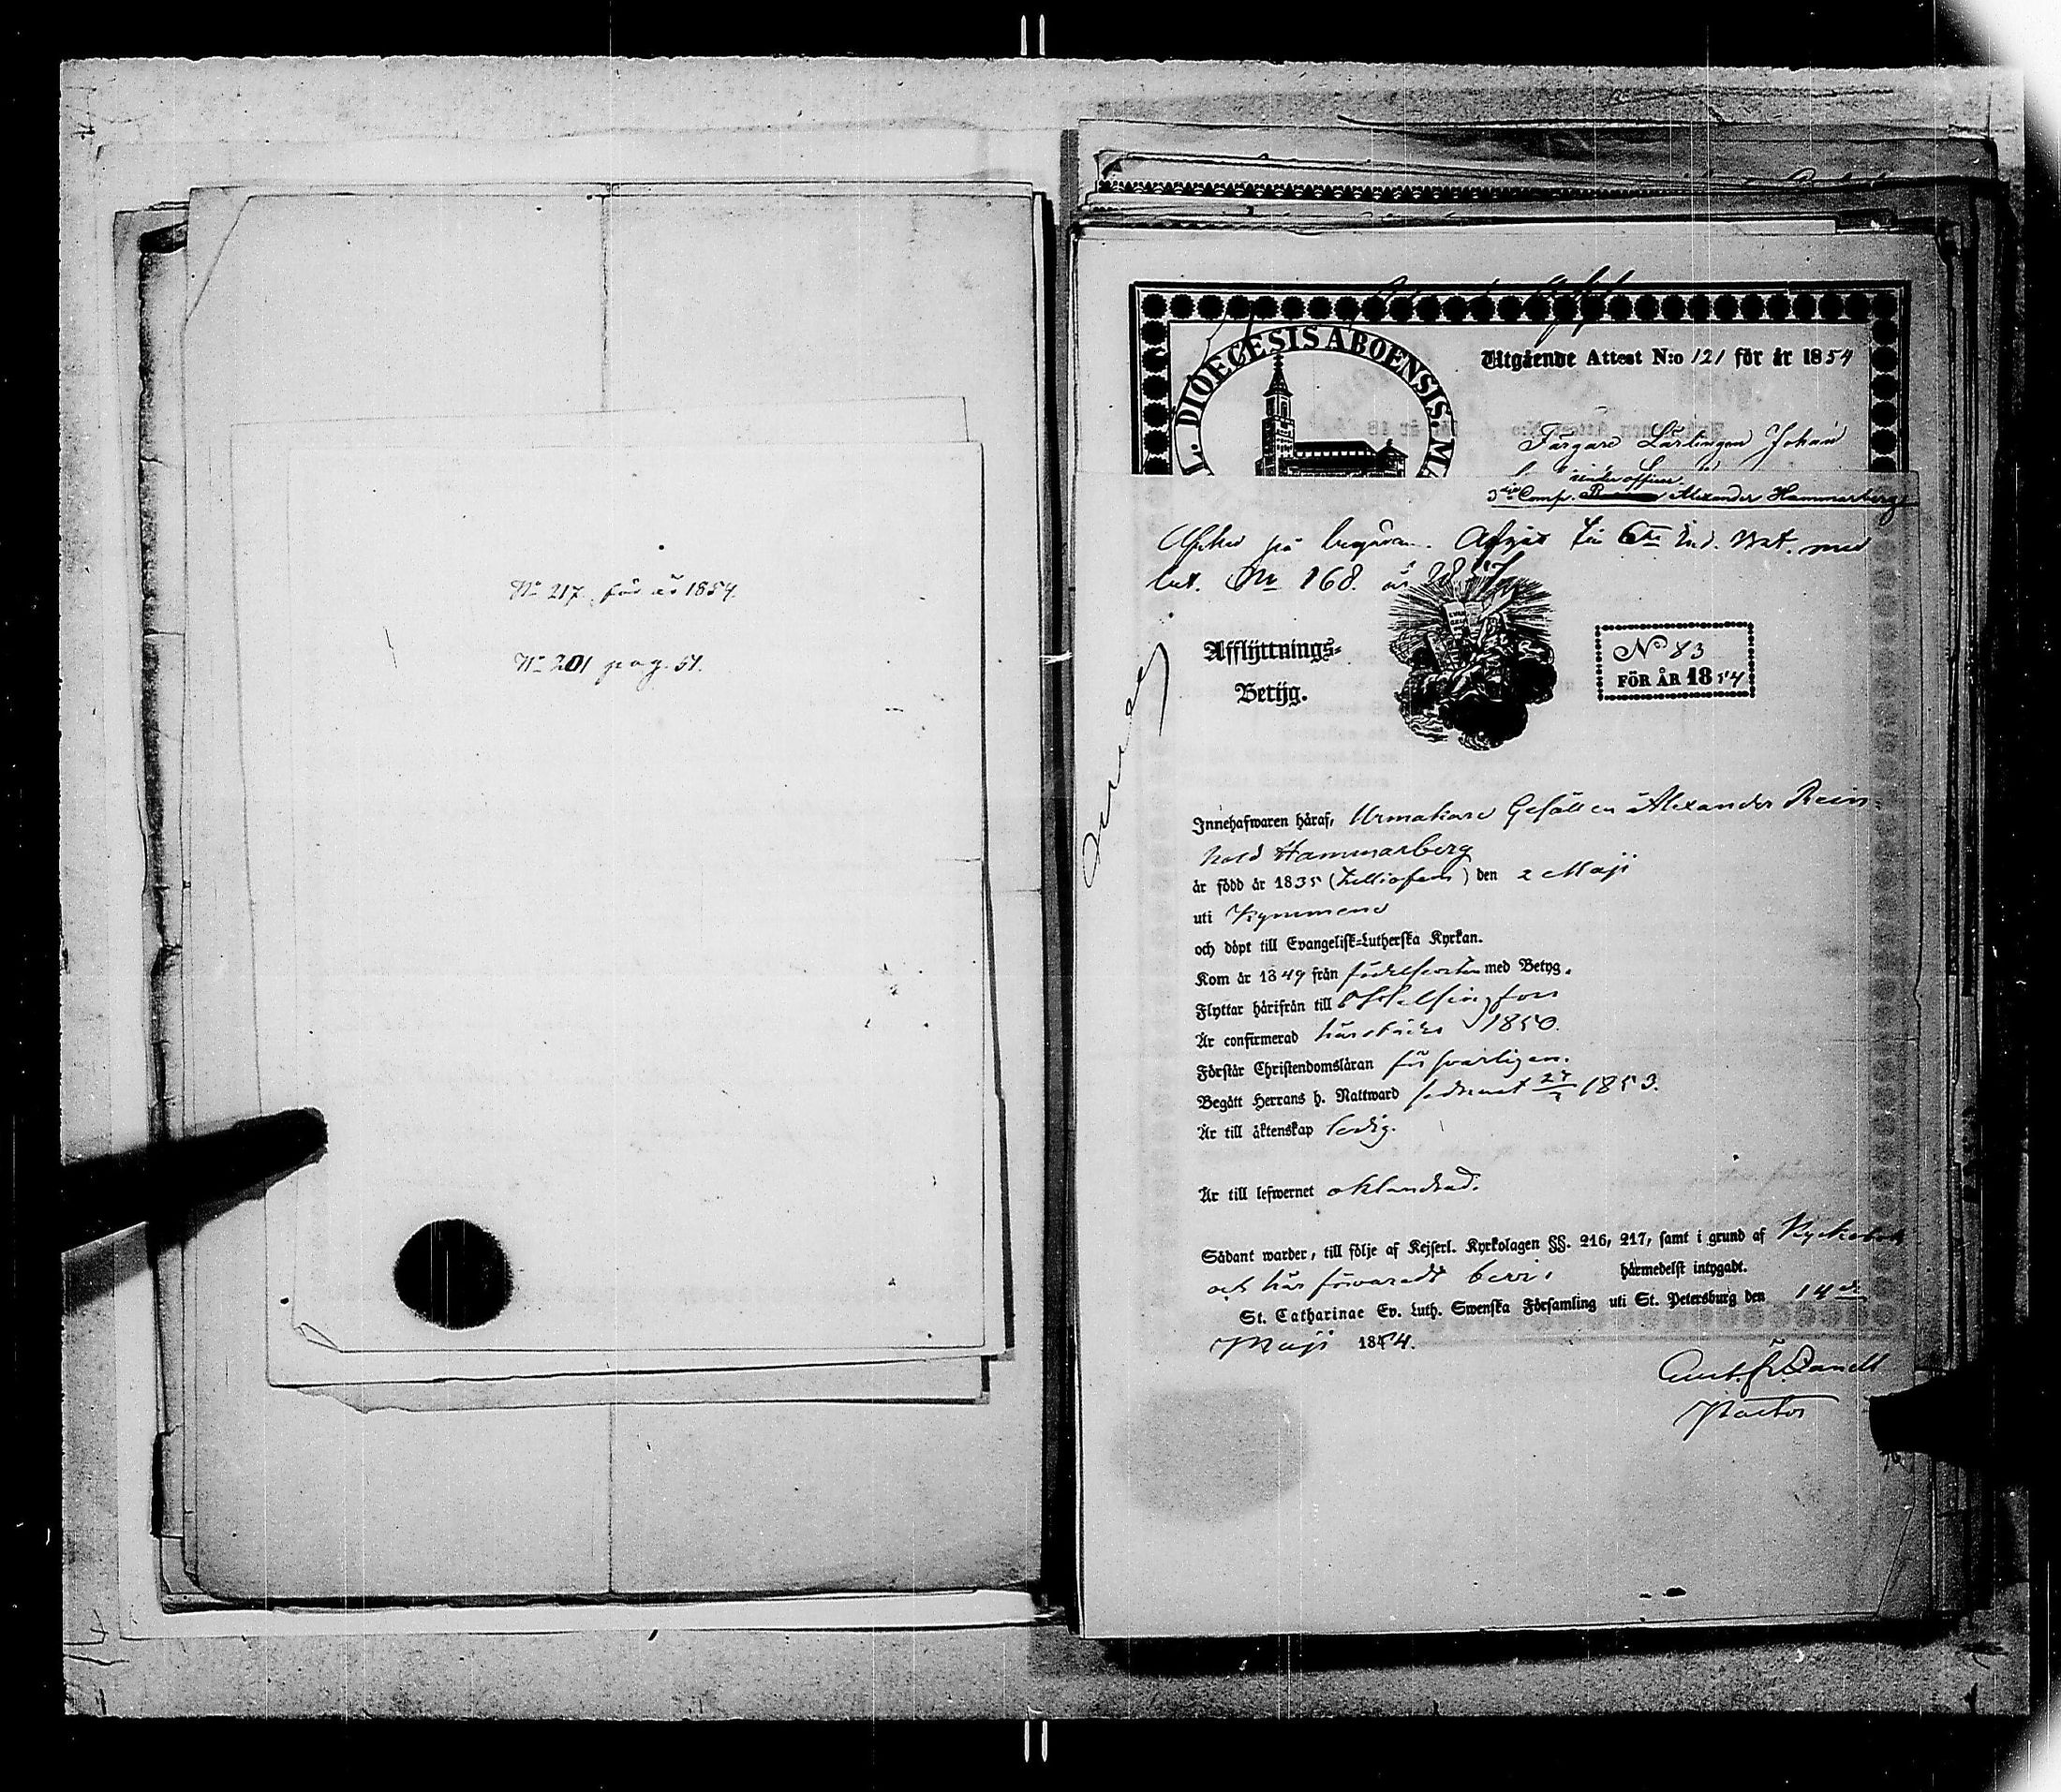 No 217 för år 1854.
No 201 pag. 51.
L. DIOECESIS ABOENSIS. M
Utgående Attest N:o 121 för år 1854
Färgare Lärlingen Johan
underofficer
3die Comp. Alexander Hammarberg
på begäran. till 6te Ind. Bat. med
No 168.
Afflyttnings=
Betyg.
No 83
FÖR ÅR 1854
Innehafwaren häraf, Urmakare Gesällen Alexander Rein-
hold Hammarberg
är född år 1835 () den 2 Maji
uti Kymmene
och döpt till Evangelisk=Lutherska Kyrkan.
Kom år 1849 från födelseorten med Betyg.
Flyttar härifrån till Helsingfors
Är confirmerad härstädes 1850.
Förstår Christendomsläran försvarligen.
Begått Herrans h. Nattward sednast 27/ 1853.
Är till äktenskap ledig.
Är till lefwernet oklandrad.
Sådant warder, till följe af Kejserl. Kyrkolagen §§. 216, 217, samt i grund af Kyrkobok
och här förvaradt bevis härmedelst intygadt.
St. Catharinae Ev. Luth. Swenska Församling uti St. Petersburg den 14de
Maji 1854.
Pastor